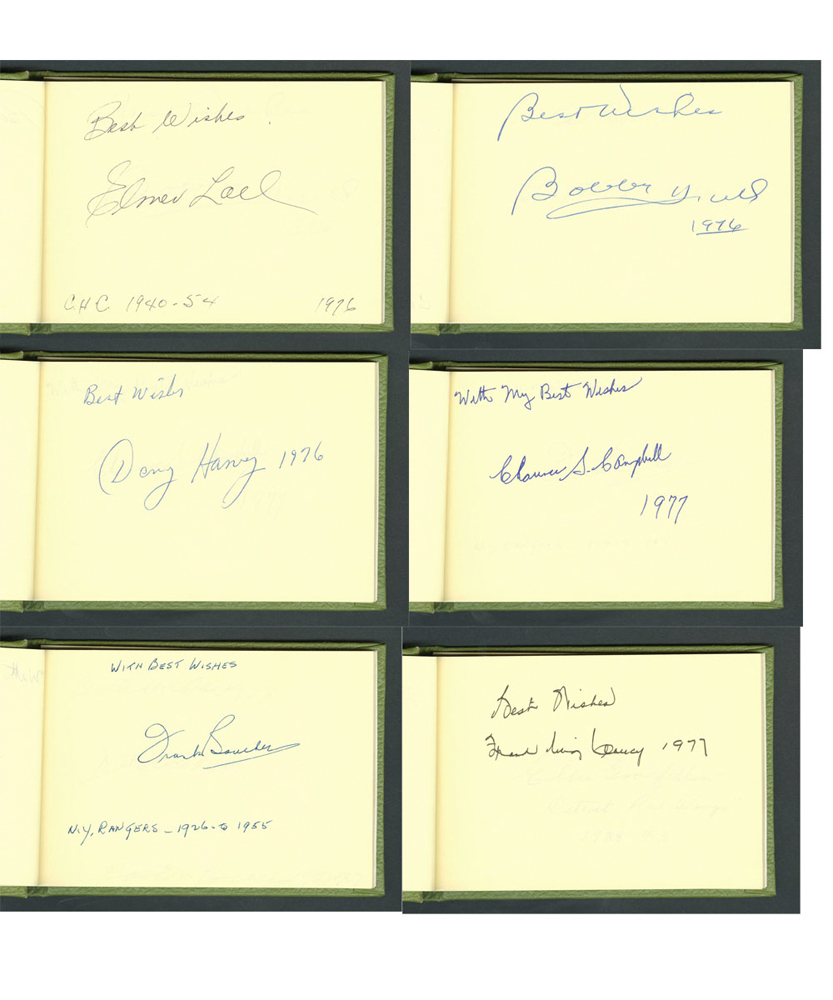 Best Wishes.
Elmer Lach
C.H.C. 1940-54 1976
Best Wishes
Bobby Hull
1976
Best Wishes
Doug Harvey 1976
With My Best Wishes
Clarence S. Campbell
1977
WITH BEST WISHES
Frank Boucher
N.Y. RANGERS - 1926-to 1955
Best Wishes
Frank King Clancy 1977